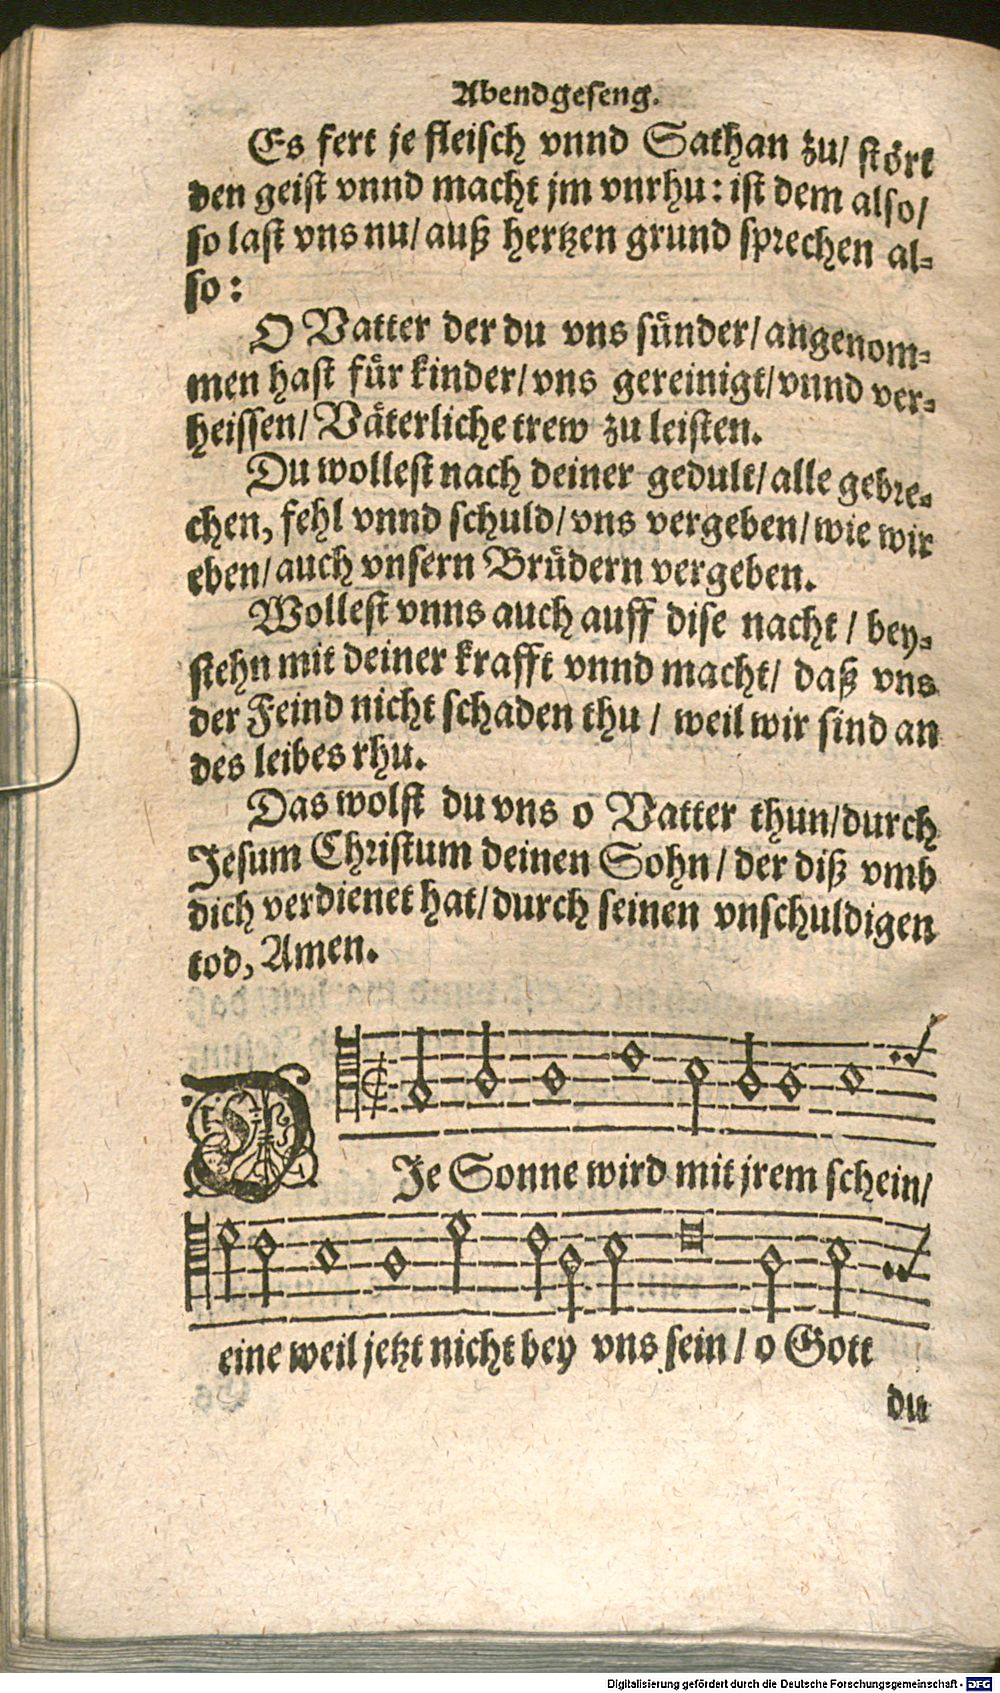 Abendgeseng.
Es fert je fleisch vnnd Sathan zu/ stört
den geist vnnd macht jm vnrhu: ist dem also/
so last vns nu/ auß hertzen grund sprechen al⸗
so:
O Vatter der du vns sünder/ angenom⸗
men hast für kinder/ vns gereinigt/ vnnd ver⸗
heissen/ Väterliche trew zu leisten.
Du wollest nach deiner gedult/ alle gebre⸗
chen, fehl vnnd schuld/ vns vergeben/ wie wir
eben/ auch vnsern Brüdern vergeben.
Wollest vnns auch auff dise nacht/ bey⸗
stehn mit deiner krafft vnnd macht/ daß vns
der Feind nicht schaden thu/ weil wir sind an
des leibes rhu.
Das wolst du vns o Vatter thun/ durch
Jesum Christum deinen Sohn/ der diß vmb
dich verdienet hat/ durch seinen vnschuldigen
tod, Amen.
DJe Sonne wird mit jrem schein/
eine weil jetzt nicht bey vns sein/ o Gott
du
Digitalisierung gefördert durch die Deutsche Forschungsgemeinschaft - DFG